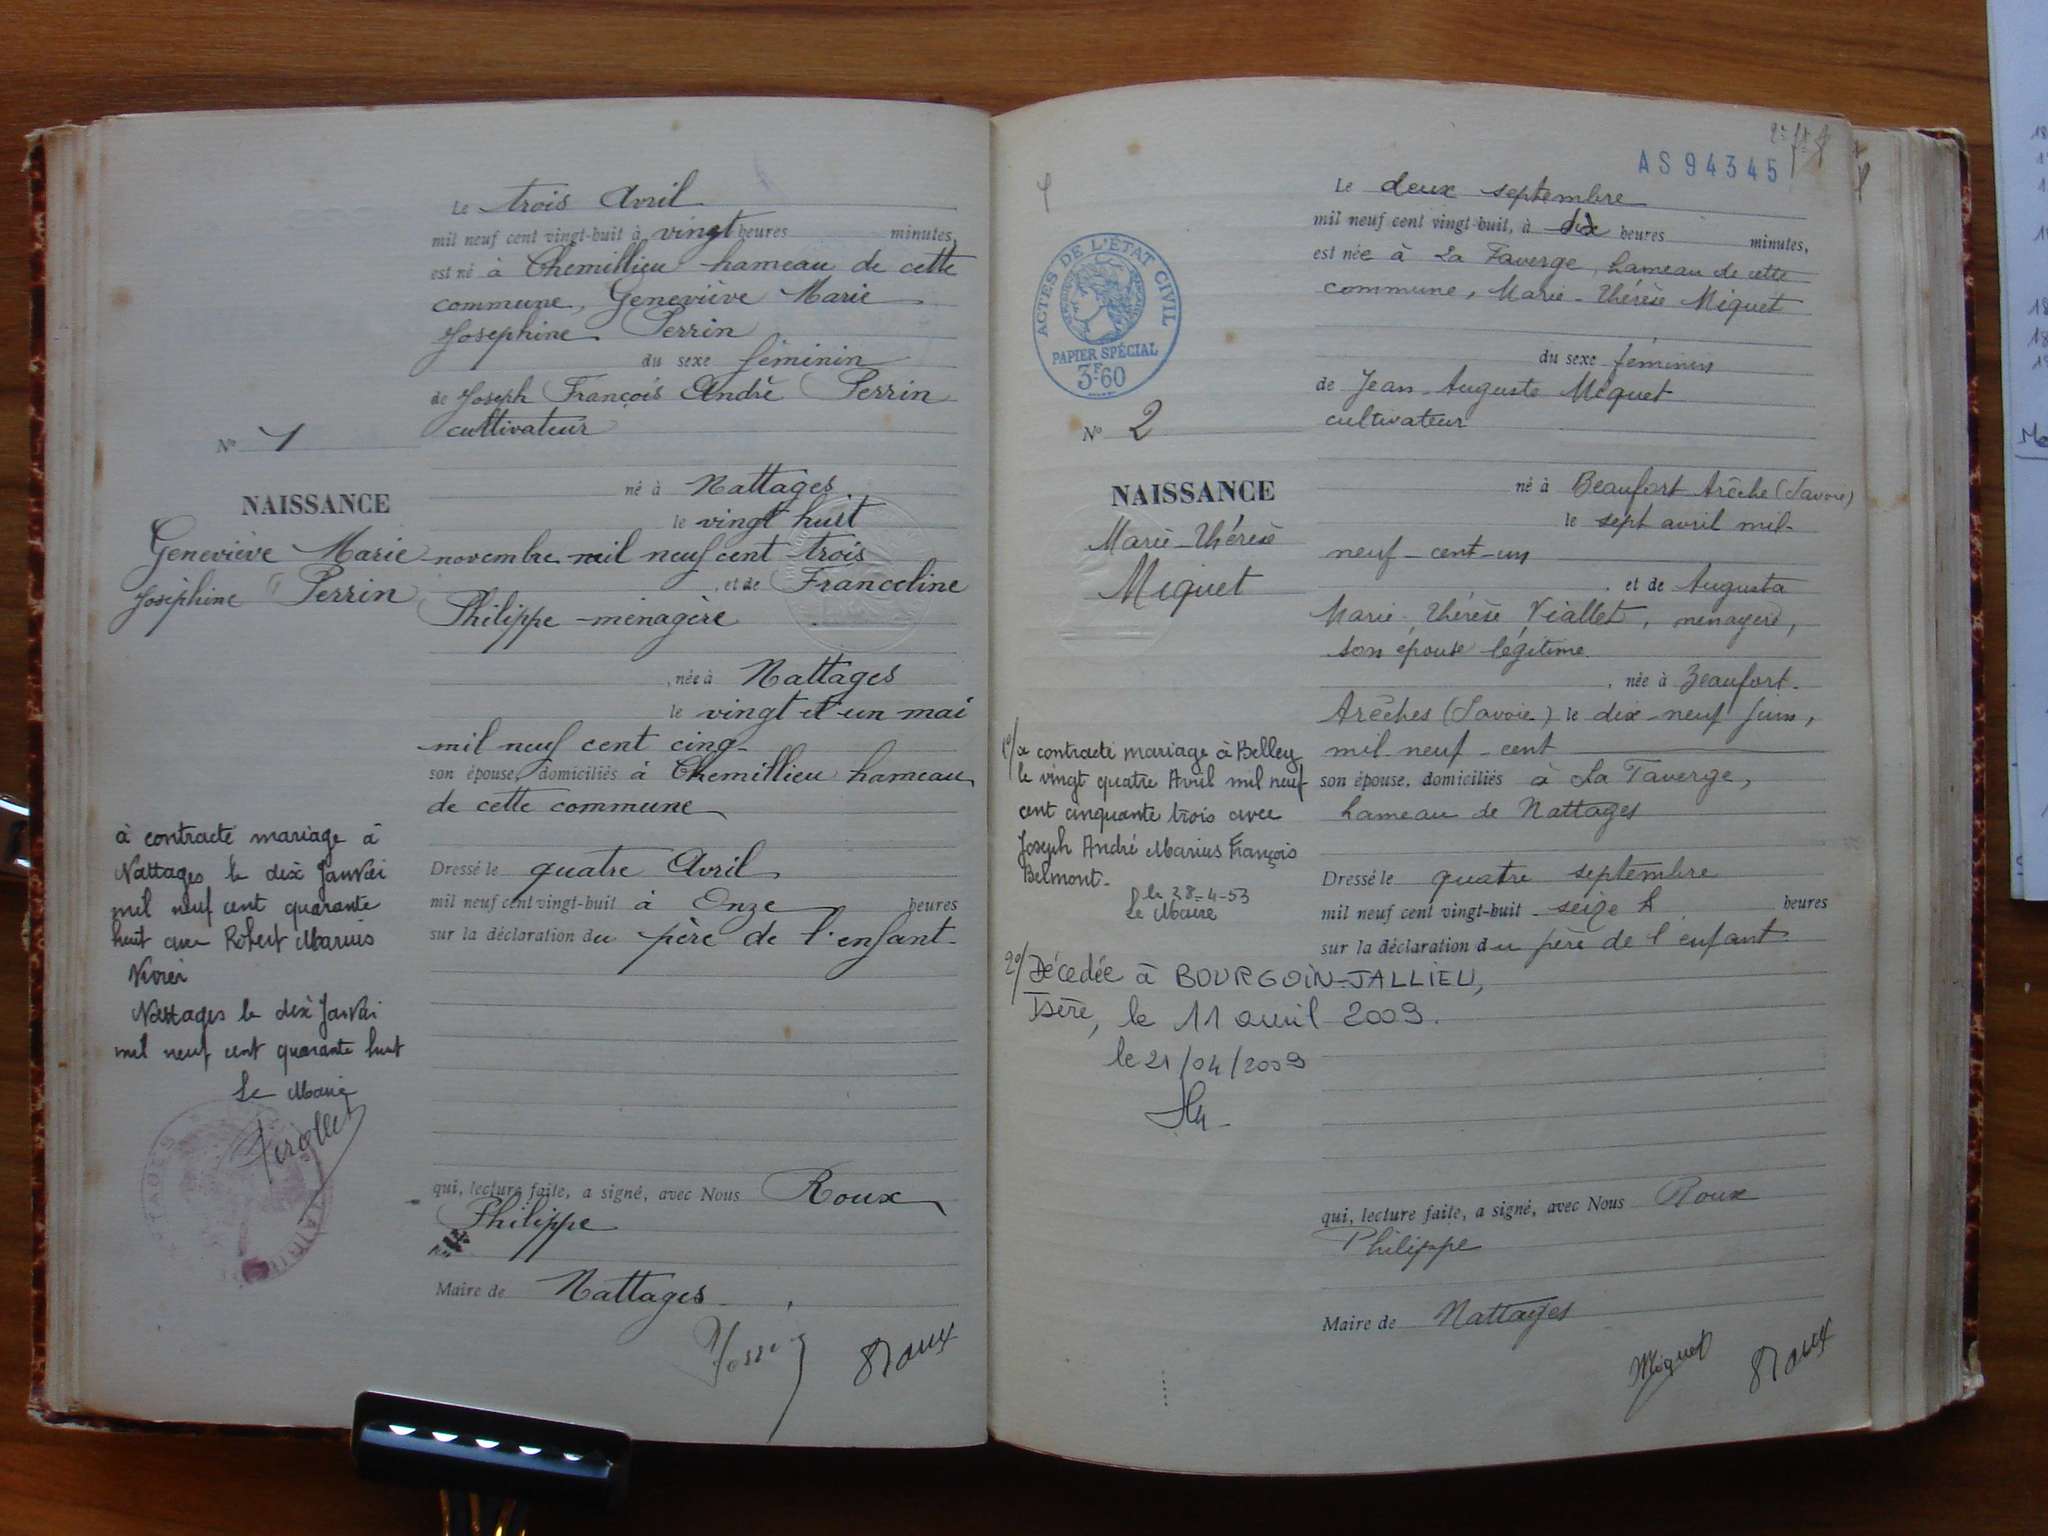 Le trois Avril
mil neuf cent vingt-huit à vingt heures minutes,
est né à Chemillieu hameau de cette
commune, Geneviève Marie
Josephine Perrin
du sexe féminin
de Joseph François André Perrin
cultivateur
né à Nattages
le vingt huit
novembre mil neuf cent trois
et de Franceline
Philippe ménagère
, née à Nattages
le vingt et un mai
mil neuf cent cinq
son épouse, domiciliés à Chemillieu hameau
de cette commune
Dressé le quatre Avril
mil neuf cent vingt-huit à Onze heures
sur la déclaration du père de l'enfant
qui, lecture faite, a signé, avec Nous Roux
Philippe
Maire de Nattages
Roux
N° 1
NAISSANCE
Geneviève Marie
Joséphine Perrin
à contracté mariage à
Nattages le dix Janvier
mil neuf cent quarante
huit avec Robert Marius
Nattages le dix Janvier
mil neuf cent quarante huit
Le Maire
AS 94345
Le deux septembre
mil neuf cent vingt-huit, à dix heures minutes,
est née à La Taverge, hameau de cette
commune, Marie-Thérèse Miguet
du sexe féminin
de Jean-Auguste Miguet
cultivateur
né à Beaufort Arêche (Savoie)
le sept avril mil-
neuf-cent-un
. et de Augusta
Marie-Thérèse Viallet, ménagère,
son épouse légitime
, née à Beaufort-
Arêches (Savoie) le dix-neuf juin,
mil neuf-cent
son épouse, domiciliés à La Taverge,
hameau de Nattages
Dressé le quatre septembre
mil neuf cent vingt-huit seize h heures
sur la déclaration du père de l'enfant
qui, lecture faite, a signé, avec Nous Roux
Philippe
Maire de Nattages
Miguet Roux
ACTES DE L'ÉTAT CIVIL
PAPIER SPÉCIAL
3F.60
N° 2
NAISSANCE
Marie-Thérèse
Miguet
1°/ a contracté mariage à Belley
le vingt quatre Avril mil neuf
cent cinquante trois avec
Joseph André Marius François
Belmont-
le 28-4-53
Le Maire
2°/ Décédée à BOURGOIN-JALLIEU,
Isère, le 11 avril 2009.
le 21/04/2009